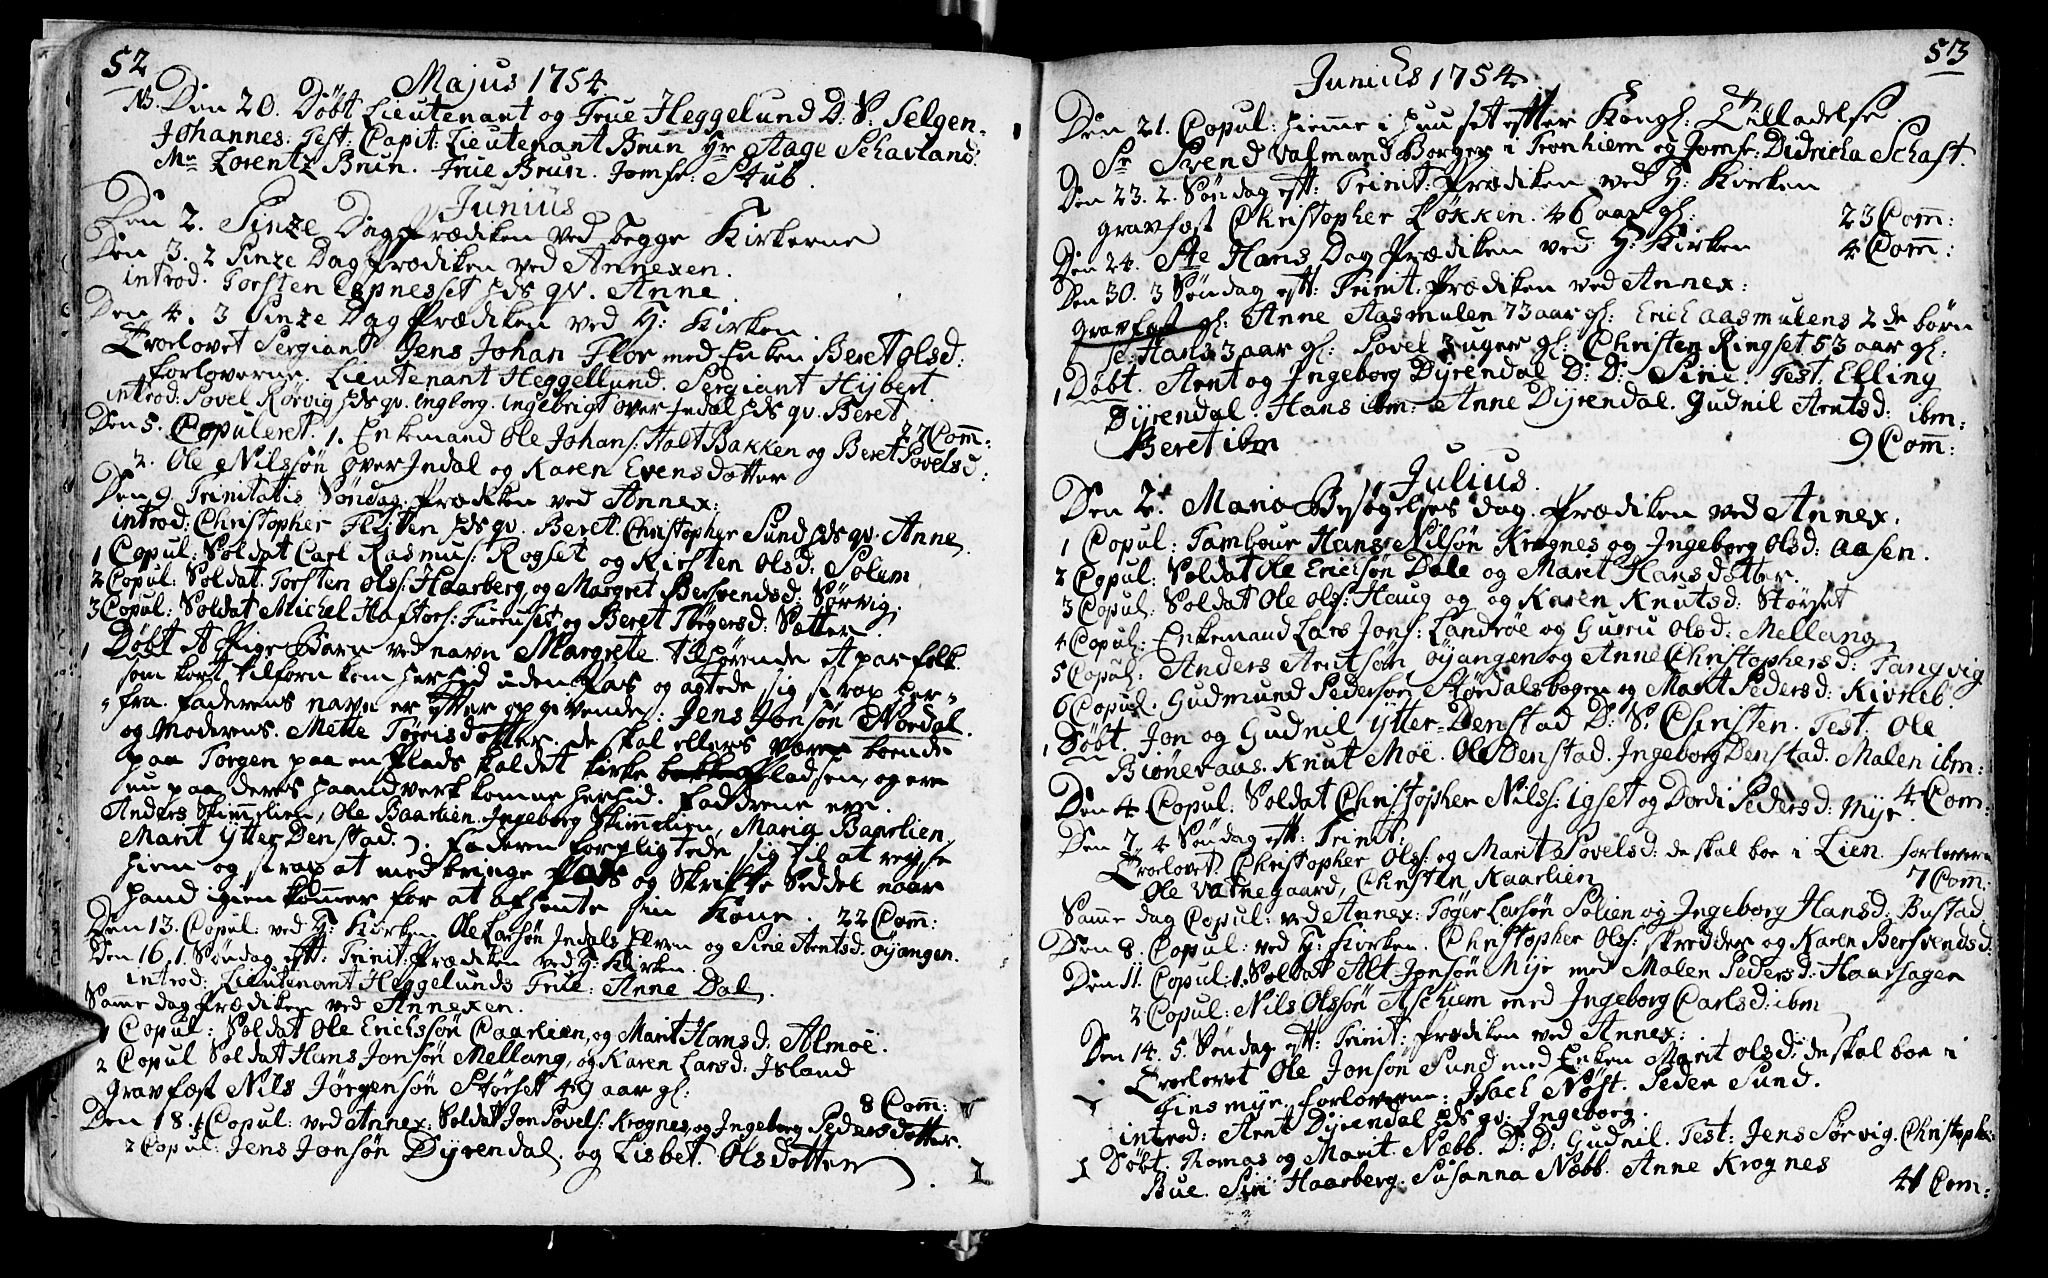 52
Majus 1754
N. Den 20. Døbt Lieutenant og Frue Heggelund D. S. Selgen-
Johannes. Test: Capit: Lieutenant Brun Hr Aage Schavland.
Mr Lorentz Brun. Frue Brun. Jomfr: Stub.
Junius
Den 2. Pinze Dag Prædiken ved begge Kirkerne
Den 3. 2 Pinze Dag Prædiken ved Annexen.
introd. Torsten Espnesset hds qv. Anne.
Den 4. 3 Pinze Dag Prædiken ved H: Kirken
Troelovet Sergiant Jens Johan Flor med Enken Beret Olsd:
forloverne. Lieutenant Heggellund. Sergiant Hijbert.
introd: Povel Rørvig hds qv. Ingborg. Ingebrigt over Jndal hds qv. Beret.
27 Com:
Den 5. Copuleret. 1. Enkemand Ole Johans: Halt Bakken og Beret Povelsd:
2. Ole Nilssøn Over Jndal og Karen Evensdotter
Den 9. Trinitatis Søndag Prædiken ved Annex:
introd: Christopher Flyten hds qv. Beret. Christopher Sund hds qv. Anne.
1 Copul: Soldat Carl Rasmus: Rogset og Kirsten Olsd: Solum
2 Copul: Soldat. Torsten Ols: Haarberg og Margret Bersvendsd. Sørvig.
3 Copul: Soldat Michel Haftors: Furenset og Beret Tøgersd: Sætter.
1 Døbt et Pige Barn ved navn Margrete. tilhørende et par folk
som kort tilforn kom herhid uden Pas og agtede sig strax her-
fra. faderens navn er efter opgivende: Jens Jonsøn Nordal.
og Moderens. Mette Tøgersdotter. de skal ellers være boende
paa Torgen paa en Plads kaldet kirke Pladsen, og ere
nu paa deres haandverk komne herhid. faddrene ere.
Anders Skimmelien, Ole Baarlien. Ingeborg Skimmelien, Maria Baarlien,
Marit Ytter Denstad. Faderen forpligtede sig til at reyse
hiem og strax at medbringe Pas og Skrifte Seddel naar
hand igien kommer for at afhente sin Kone. 22 Com:
Den 13. Copul: ved H: Kirken Ole Larsøn Jndals Elven og Sirie Arentsd: Øyangen.
Den 16. 1. Søndag eft: Trinit: Prædiken ved H: Kirken.
introd: Lieutenant Heggelunds Frue: Anne Dal.
Same dag Prædiken ved Annexen.
1 Copul: Soldat Ole Erichssøn Caarlien, og Marit Hansd: Almoe.
2 Copul Soldat Hans Jonsøn Mellang, og Karen Larsd: Island
Gravfæst Nils Jørgensøn Størset 49 aar gl:
8 Com:
Den 18. 1 Copul: ved Annex: Soldat Jon Povels: Krognes, og Ingeborg Pedersdotter.
2 Copul: Jens Jonsøn Dyrendal. og Lisbet Olsdotter.
53
Junius 1754
Den 21. Copul: hieme i huuset efter Kongl: Tilladelse.
Sr Svend Valmand Borger i Tronhiem og Jomfr: Didricha Schaft.
Den 23. 2. Søndag eft: Trinit: Prædiken ved H: Kirken
gravfæst Christopher Løkken. 46 aar gl: 23 Com:
Den 24. Ste Hans Dag Prædiken ved H: Kirken 4 Com:
Den 30. 3 Søndag eft: Trinit: Prædiken ved Annex:
Gravfæst gl: Anne Aasmulen 73 aar gl: Erich Aasmulens 2de børn
Hans 3 aar gl: Povel 3 uger gl: Christen Ringset 53 aar gl:
1 Døbt. Arnt og Ingeborg Dyrendal D: D: Sirie. Test. Elling
Dyrendal. Hans ibm: Anne Dyrendal. Gudnil Arntsd: ibm:
Beret ibm 9 Com:
Julius.
Den 2. Mariæ Besøgelses dag. Prædiken ved Annex.
1 Copul: Tambour Hans Nilsøn Krognes og Ingeborg Olsd: Aasen.
2 Copul: Soldat Ole Ericksøn Dale og Marit Hansdotter.
3 Copul: Soldat Ole Ols: Haug og og Karen Knutsd: Størset
4 Copul: Enkemand Lars Jons: Landrøe og Guru Olsd: Mellang
5 Copul: Anders Arntsøn Øyangen og Anne Christophersd: Tangvig
6 Copul: Gudmund Pedersøn Størdalsbogen og Marit Pedersd: Kivneb.
1 Døbt Jon og Gudnil Ytter-Denstad D: S: Christen. Test. Ole
Biønevaus. Knut Moe. Ole Denstad. Ingeborg Denstad. Malen ibm:
4 Com:
Den 4. Copul: Soldat Christopher Nils: Lgset og Dordi Pedersd: Mye.
Den 7. 4 Søndag eft: Trinit:
Troelovet. Christopher Ols: og Marit Povelsd: de skal boe i Lien. forlovern
Ole Vatnegaard, Christen Kaarlien 7 Com:
Samme dag Copul: ved Annex: Tøger Larsøn Solien og Ingeborg Hansd: Bustad
Den 8. Copul: ved H: Kirken. Christopher Ols: Skredder og Karen Bersvendsd:
Den 11 Copul: 1. Soldat Alt Jonsøn Mye med Malen Pedersd: Haarhagen
2 Copul: Nils Olssøn Aschiem med Ingeborg Carlsd: ibm
Den 14. 5. Søndag eft: Trinit: Prædiken ved Annex:
Troelovet Ole Jonsøn Sund med Enken Marit Olsd: de skal boe i
Finsmye, forloverne: Isach Nøst. Peder Sund.
introd: Arnt Dyrendal hds qv: Ingeborg.
1 Døbt. Thomas og Marit Næbb. D: D: Gudnil. Test: Jens Sørvig. Christopher
Bue. Siri Haarberg. Susanna Næbb. Anne Krognes
41 Com: